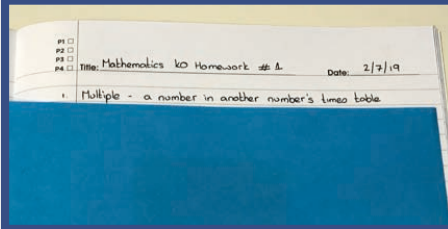 P1
P2
P3
P4 Title: Mathematics KO Homework # 1 Date: 2/7/19
1. Multiple - a number in another number's times table